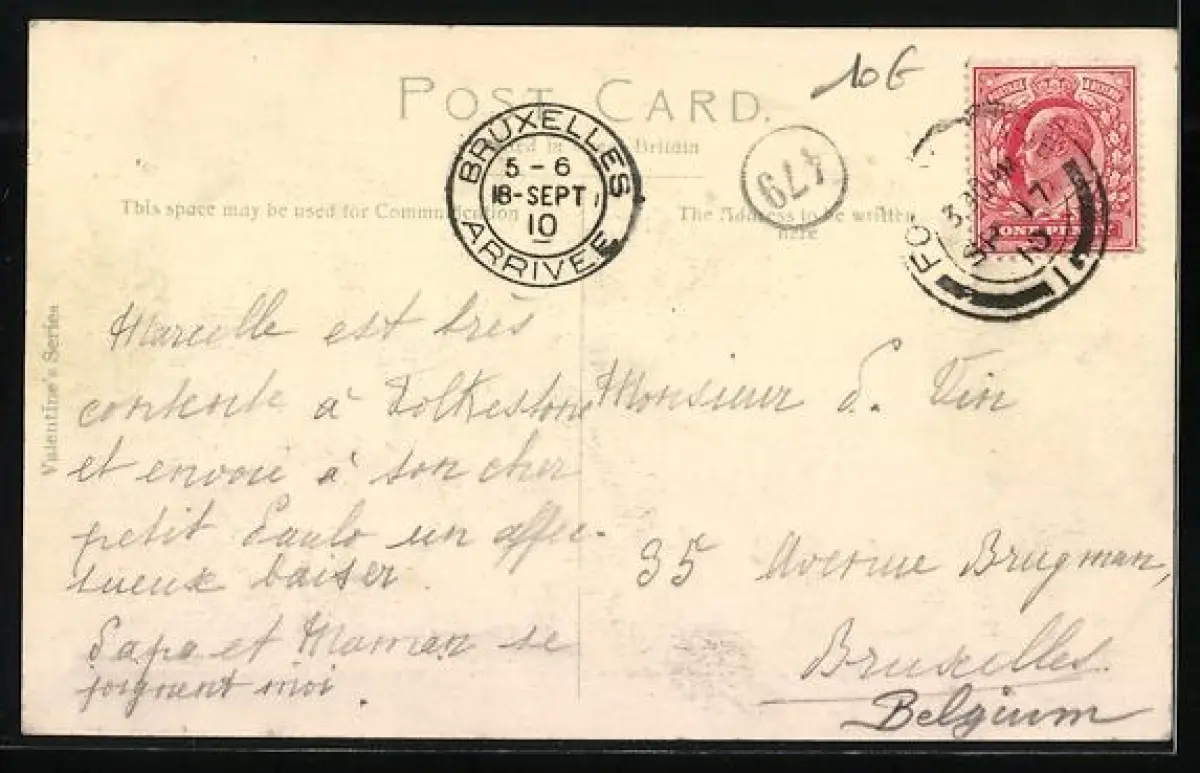 10€
POST CARD.
Printed in Great Britain
BRUXELLES
5-6
18-SEPT
10
ARRIVEE
479
FO
SP 17
10
ONE PENNY
This space may be used for Communication
The Address to be written
here
Valentine's Series
Marcelle est très
contente à Folkestone
et envoie à son cher
petit Paulo un affec-
tueux baiser.
Papa et Maman se
joignent moi.
Monsieur P. Vin
35 Avenue Brugman,
Bruxelles.
Belgium